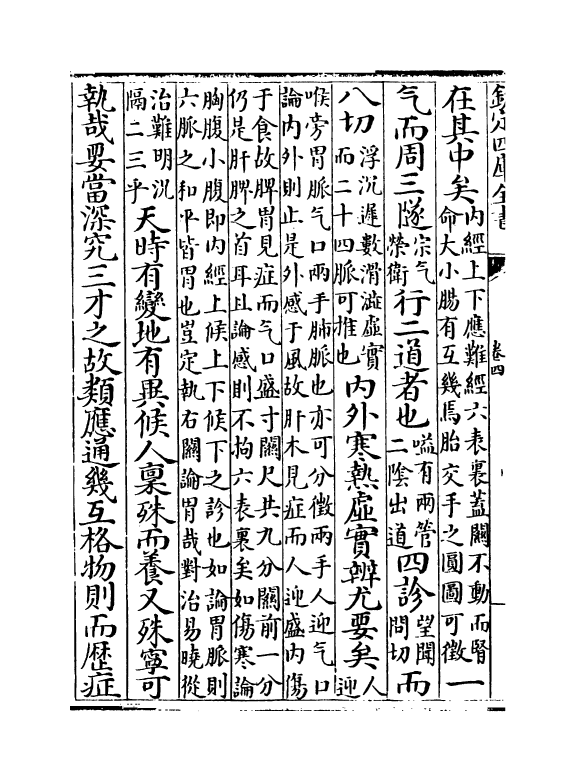 欽定四庫全書 卷四
在其中矣內經上下應難經六表裏蓋關不動而腎命大小腸有互幾焉胎交手之圓圖可徵一
气而周三隧宗气榮衛行二道者也嗌有兩管二陰出道四診望聞問切而
八切浮沉遲數滑澁虛實而二十四脈可推也內外寒熱虛實辨尤要矣人迎
喉旁胃脈气口兩手肺脈也亦可分徵兩手人迎气口
論内外則止是外感于風故肝木見症而人迎盛内傷
于食故脾胃見症而气口盛寸關尺共九分關前一分
仍是肝脾之首耳且論感則不拘六表裏矣如傷寒論
胸腹小腹即内經上候上下候下之診也如論胃脈則
六脈之和平皆胃也豈定執右關論胃哉對治易曉從
治難明況隔二三乎天時有變地有異候人稟殊而養又殊寧可
執哉要當深究三才之故類應通幾互格物則而歷症